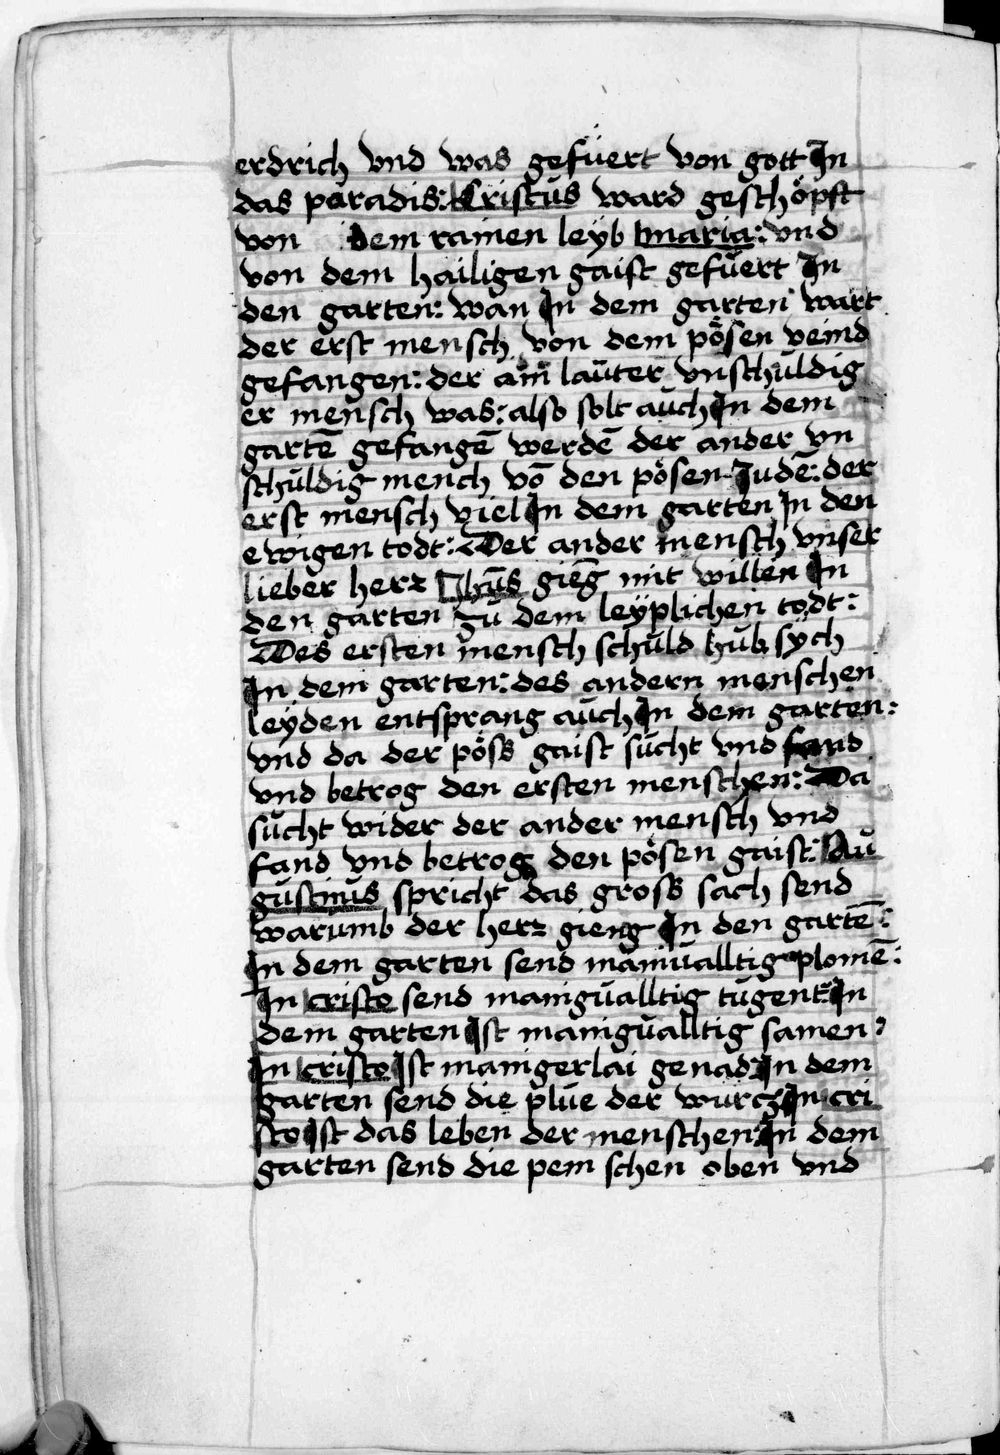 erdrich vnd was gefüert von gott In
das paradis: Cristus ward geschöpft
von dem rainen leyb maria: vnd
von dem hailigen gaist gefüert In
den garten: wan In dem garten wart
der erst mensch von dem pösen veind
gefangen: der ain lauter vnschuldig
er mensch was: also solt auch In dem
gartē gefangē werdē der ander vn
schuldig mench vō den pösen Judē: der
erst mensch viel In dem garten In den
ewigen todt: Der ander mensch vnser
lieber herr Jhūs gieng mit willen In
den garten zu dem leyplichen todt:
Des ersten mensch schuld hub sych
In dem garten: des andern menschen
leyden entsprang auch In dem garten:
vnd da der pöss gaist sucht vnd fand
vnd betrog den ersten menschen: Da
sucht wider der ander mensch vnd
fand vnd betrog den pösen gaist: Au
gustinus spricht das gross sach send
warumb der herr gieng In den gartē:
In dem garten send manivalltig plomē:
In cristo send manigualltig tugent: In
dem garten Ist manigualltig samen:
In cristo Ist manigerlai genad: In dem
garten send die plüe der wurcz: In cri
sto Ist das leben der menschen: In dem
garten send die pem schen oben vnd